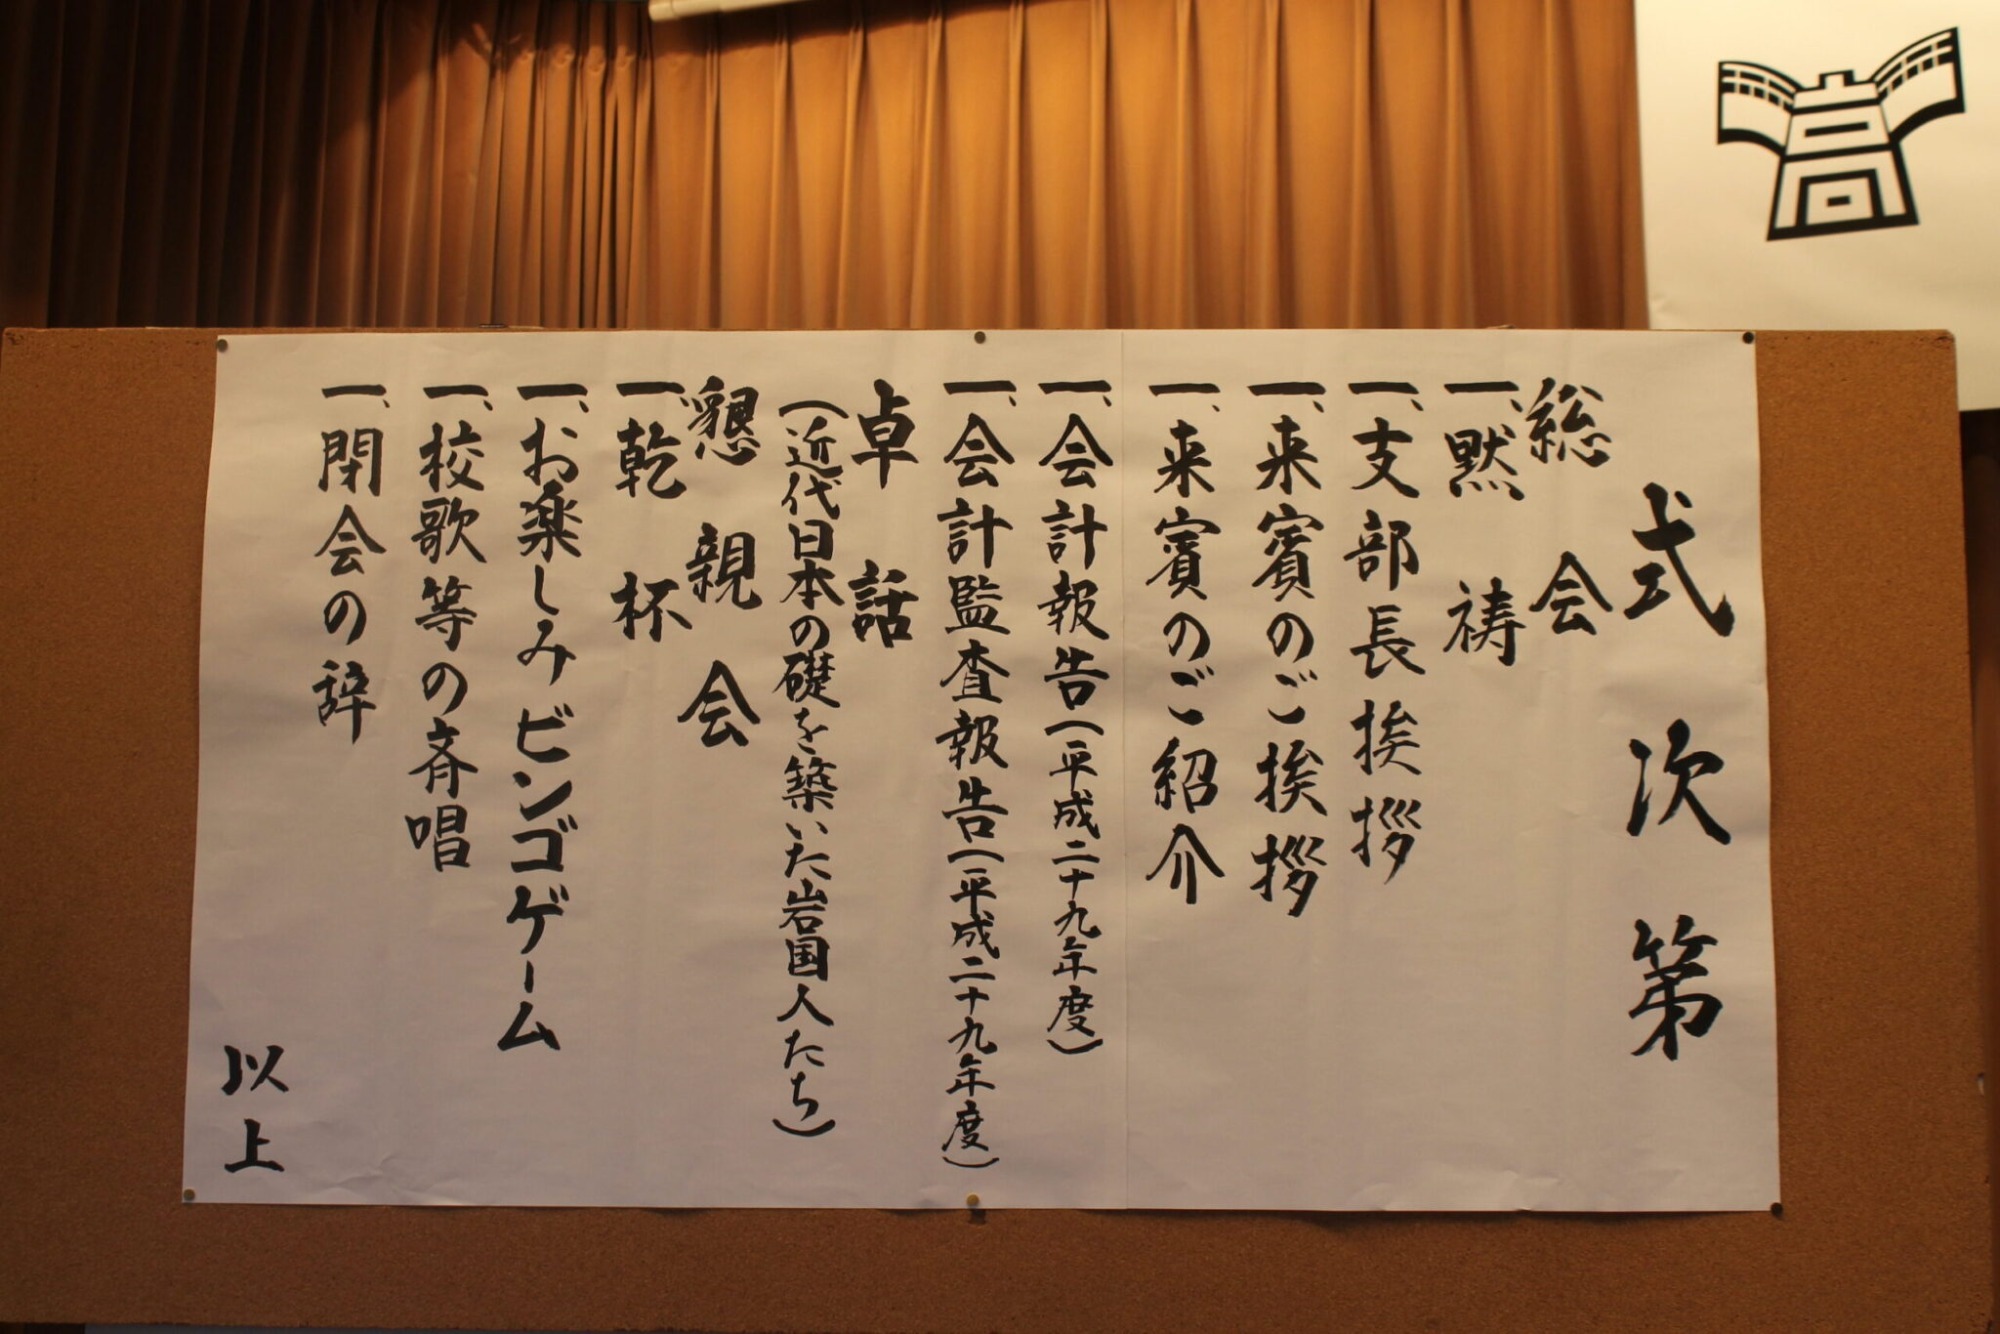 式次第
総会
一、黙祷
一、支部長挨拶
一、来賓のご挨拶
一、来賓のご紹介
一、会計報告(平成二十九年度)
一、会計監査報告(平成二十九年度)
卓話
(近代日本の礎を築いた岩国人たち)
懇親会
一、乾杯
一、お楽しみビンゴゲーム
一、校歌等の斉唱
一、閉会の辞
以上
高